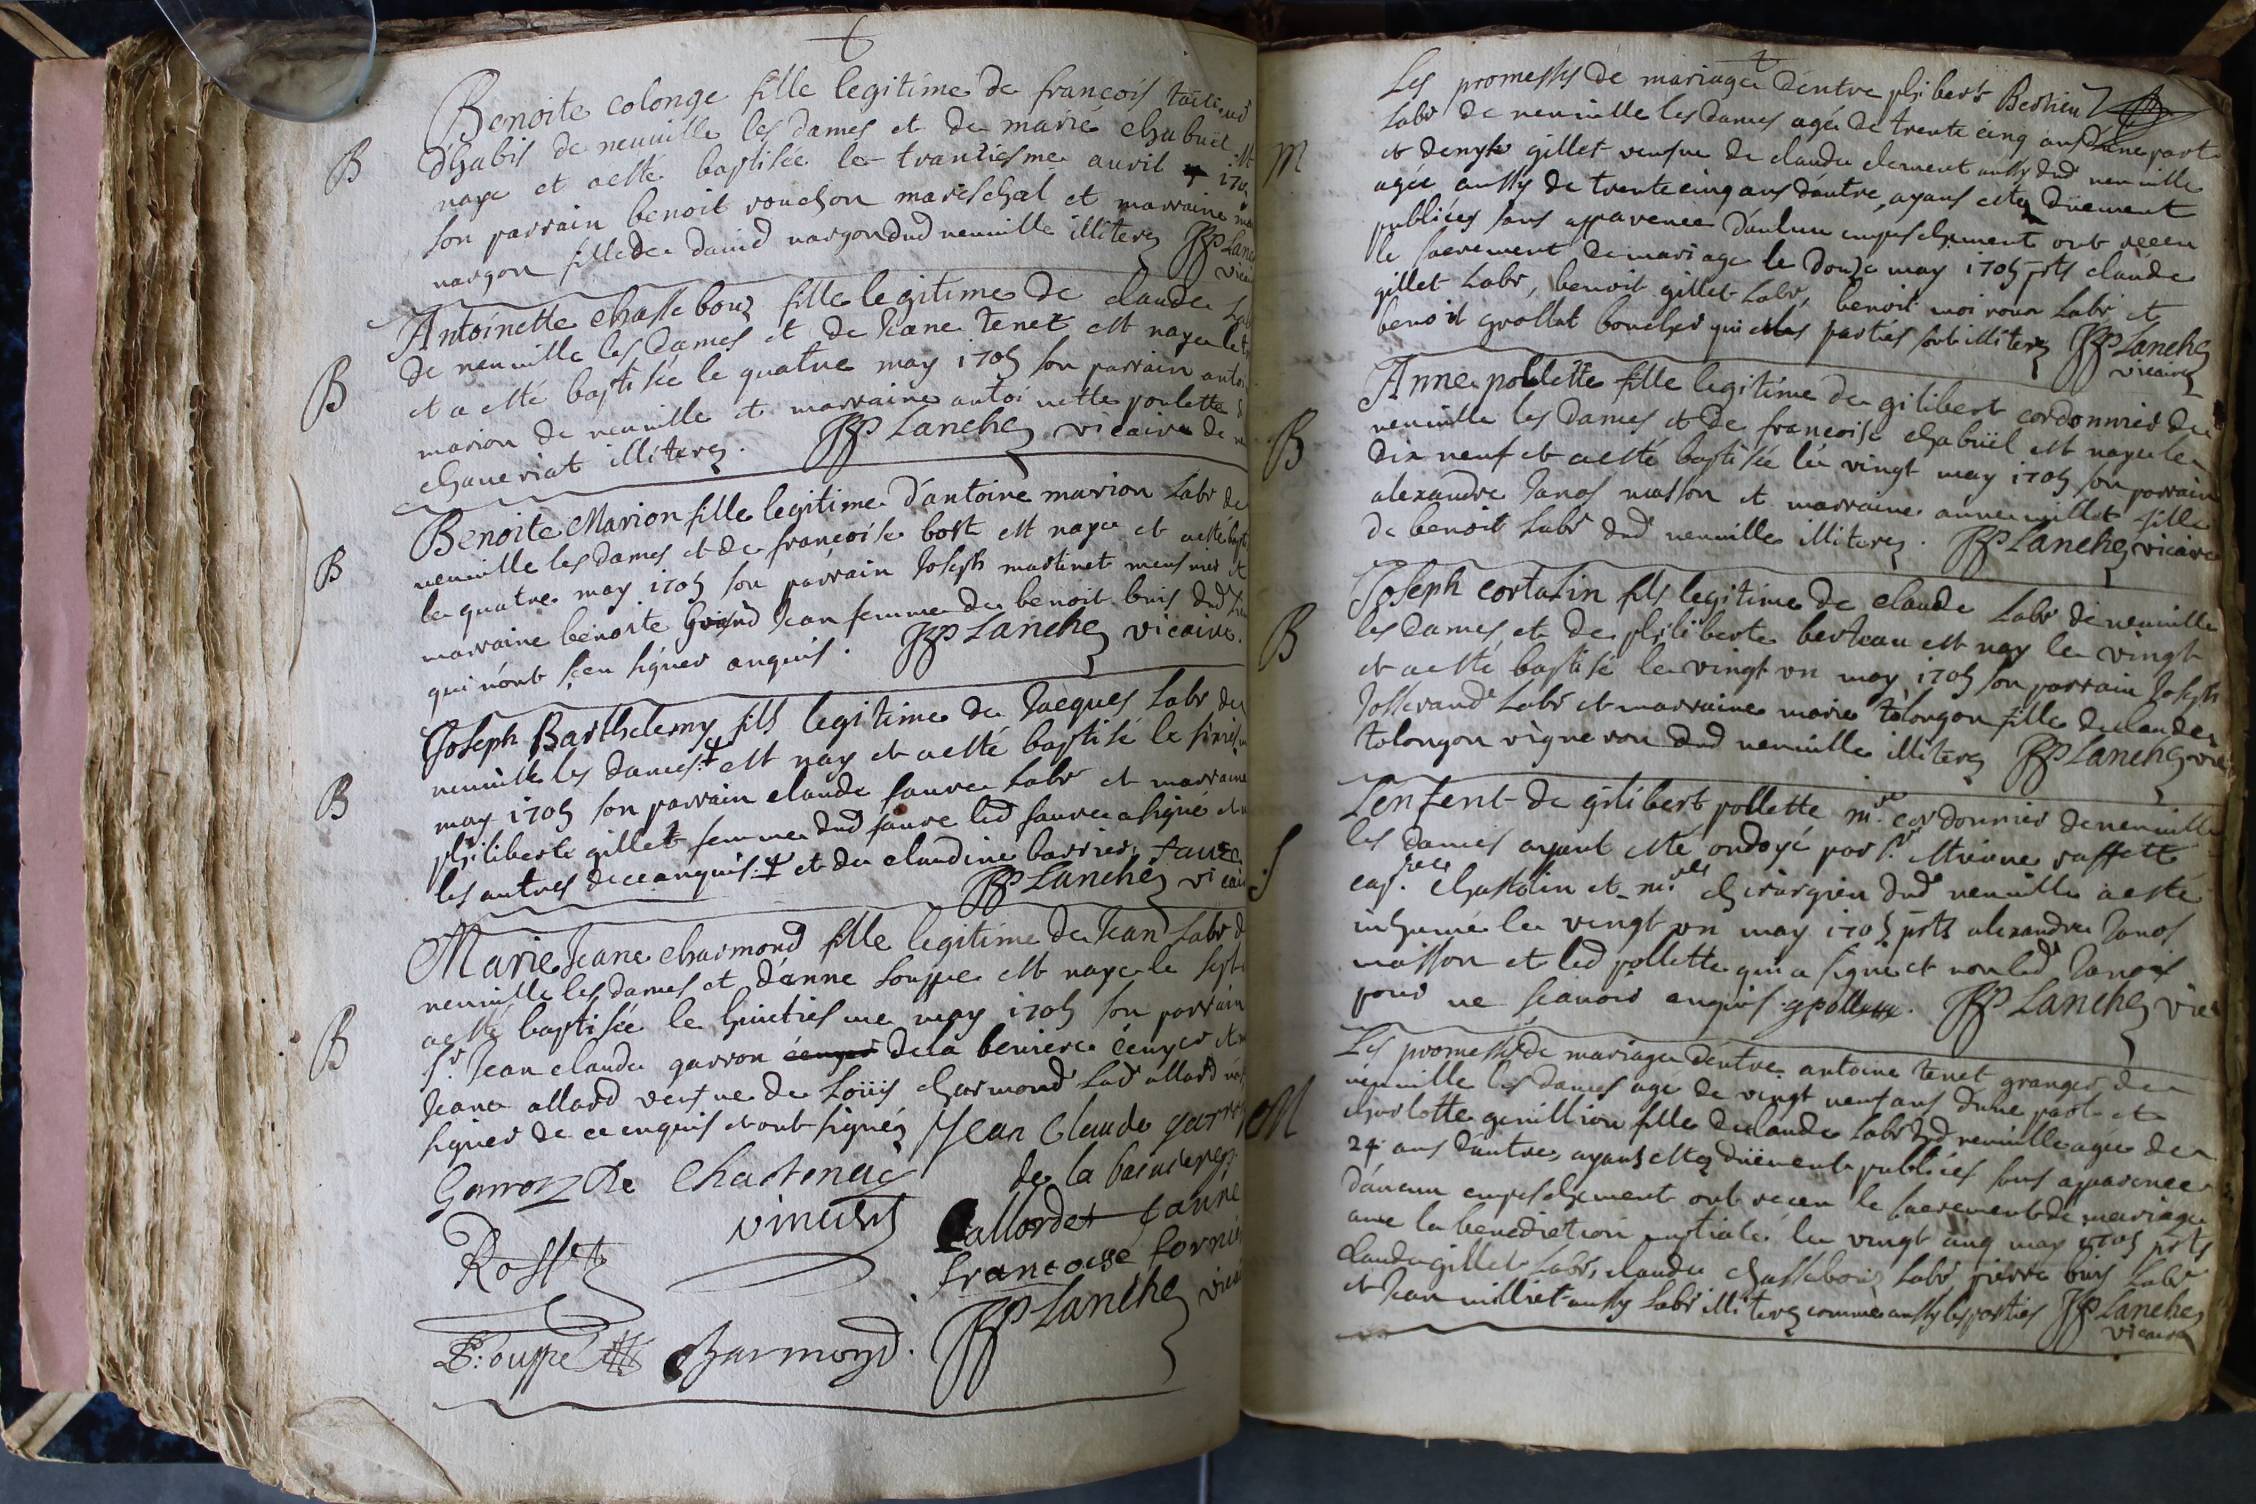 Benoite colonge fille legitime de francois
B
d'habis de neuuille les dames et de marie chabuël
naye et aesté baptisée le trantiesme auril
son parrain benoit rouchon mareschal et marraine
nargon fille de dauid nargon dud neuuille illiteres JBP Lanche
vicaire
Antoinette chassebouz fille legitime de claude Labr
de neuuille les dames et de Jeane tenet est naye le
B
et a esté baptisée le quatre may 1705 son parrain
marion de neuuille et marraine antoinette poulette
chaueriat illiteres. JBP Lanche vicaire de
Benoite Marion fille legitime d'antoine marion Labr de
neuuille les dames et de francoise bost est naye et aesté
B
le quatre may 1705 son parrain Joseph martinet et
marraine benoite grand Jean femme de benoit buis dud
qui n'ont sceu signer enquis. JBP Lanche vicaire.
Joseph Barthelemy fils legitime de Jacques Labr de
neuuille les dames ⁜ est nay et aesté baptisé le
B
may 1705 son parrain claude faure Labr et marraine
philiberte gillet femme dud faure led faure a signé et
les autres de ce enquis. ⁜ et de claudine barrier. faure
JBP Lanche vicaire
Marie Jeane charmond fille legitime de Jean Labr
neuuille les dames et d'anne souppe est naye le sept
aesté baptisée le huictiesme may 1705 son parrain
B
sr Jean claude garron de la beviere ecuyer et
Jeane allard vefue de Loüis charmond Lad allard
signer de ce enquis et ont signés Jean Claude garron
Garron De Chastenay de la
Rosset vincent allarde faure
francoise fornier
Souppe charmond. JBP Lanche vicaire
Les promesses de mariage d'entre philibert Berthieu
Labr de neuuille les dames agé de trente cinq ans d'une part
M
et denyse gillet veufue de claude clement aussy dud neuuille
agée aussy de trente cinq ans d'autre, ayans estes düement
publiées sans apparence d'aulcun empeschement ont receu
le sacrement de mariage le douze may 1705 pnts claude
gillet Labr, benoit gillet Labr, benoit moiroux Labr et
benoit grollat boucher qui et les parties sont illiteres JBP Lanche
vicaire
Anne pollette fille legitime de gilibert cordonnier de
neuuille les dames et de francoise chabuël est naye le
B
dix neuf et aesté baptisée le vingt may 1705 son parrain
alexandre Janos masson et marraine anne millet fille
de benoit Labr dud neuuille illiteres. JBP Lanche vicaire
Joseph cortasin fils legitime de claude Labr de neuuille
les dames et de philiberte berteau est nay le vingt
B
et aesté baptisé le vingt vn may 1705 son parrain Joseph
Josserand Labr et marraine marie tolongon fille de claude
tolongon vigneron dud neuuille illiteres JBP Lanche
L'enfent de gilibert pollette me cordonnier de neuuille
les dames ayant esté ondoyé par sr Etienne raffette
S
chastelin et me chirurgien dud neuuille aesté
inhumé le vingt vn may 1705 pnts alexandre Janos
masson et led pollette qui a signé et non led Janos
pour ne scauoir enquis. gpollette. JBP Lanche
Les promesses de mariage d'entre antoine tenet granger de
neuuille les dames agé de vingt neuf ans d'une part et
M
charlotte genillion fille de claude Labr dud neuuille agée de
24 ans d'autre, ayans estes düement publiées sans apparence
d'aucun empeschement ont receu le sacrement de mariage
auec la benediction nuptiale le vingt cinq may 1705 pnts
claude gillet Labr, claude chassebouz Labr, pierre buis Labr
et Jean milliet aussy Labr illiteres comme aussy les parties JBP Lanche
vicaire